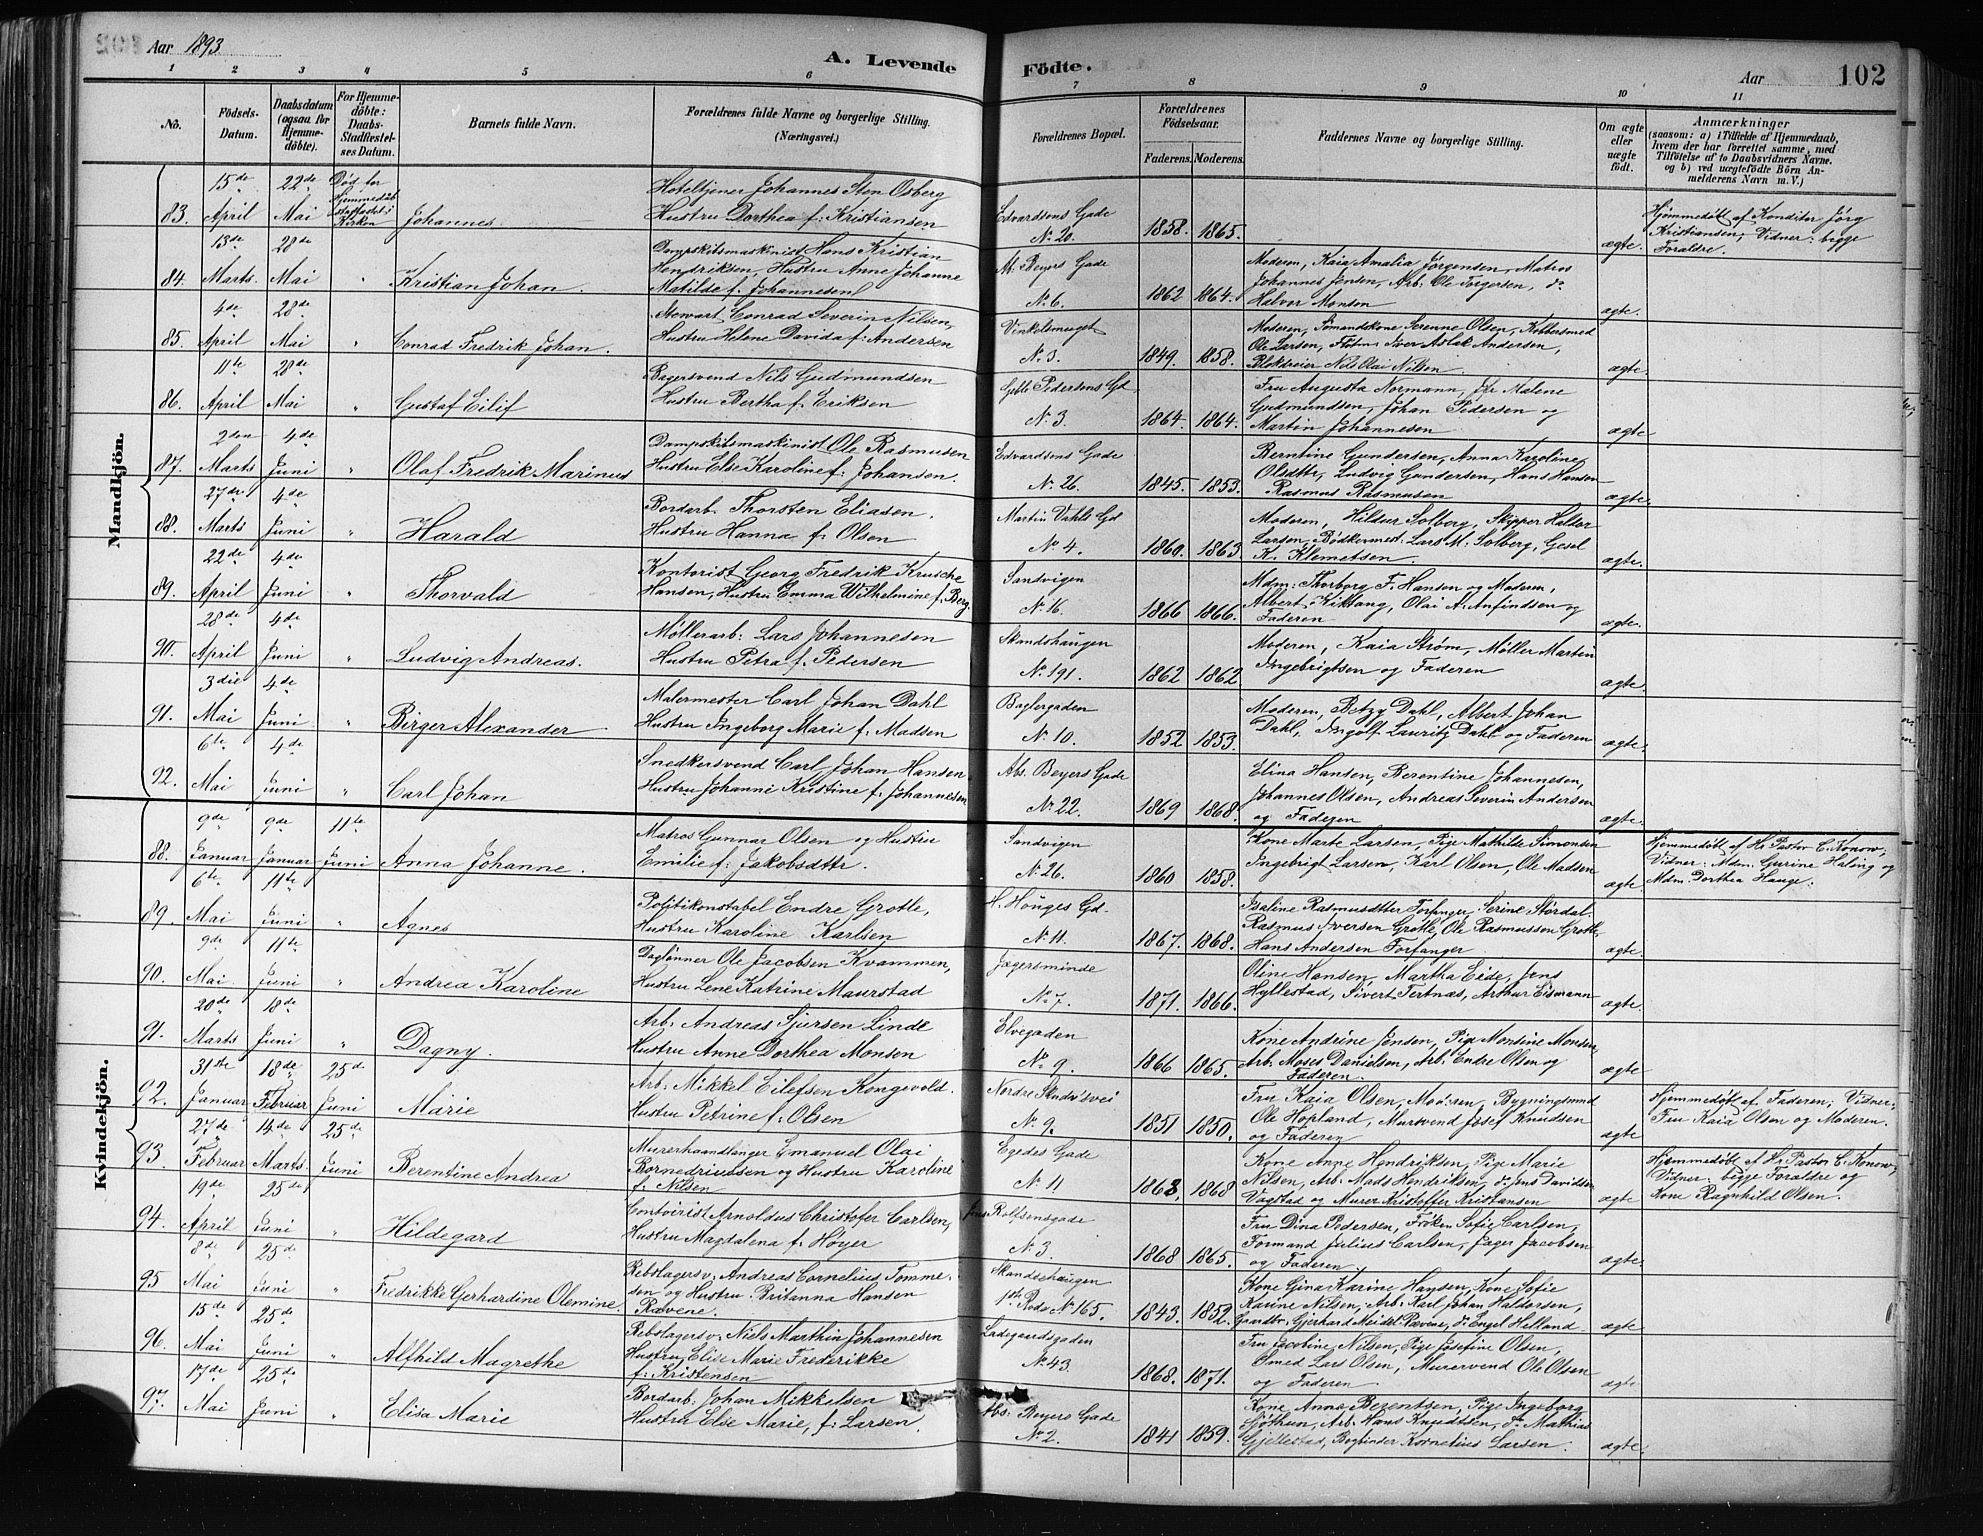 Aar 1893
A. Levende
Födte.
Aar
102
1 2 3 4 5 6 7 8 9 10 11
No.
Födsels-
Datum.
Daabsdatum
(ogsaa for
Hjemme-
döbte).
For Hjemme-
döbte:
Daabs-
Stadfæstel-
ses Datum.
Barnets fulde Navn.
Forældrenes fulde Navne og borgerlige Stilling.
(Næringsvei.)
Forældrenes Bopæl.
Forældrenes
Födselsaar.
Faderens. Moderens.
Faddernes Navne og borgerlige Stilling.
Om ægte
eller
uægte
födt.
Anmærkninger
(saasom: a) i Tilfælde af Hjemmedaab,
hvem der har forrettet samme, med
Tilföielse af to Daabsvidners Navne.
og b) ved uægtefödte Börn An-
melderens Navn m. V.)
Mandkjön.
83. 15de April 22de Mai Død før Hjemmedåb stadfæstet i Kirken Johannes
Hoteltjener Johannes Sten Osberg
Hustru Dorthea f: Kristiansen
Edvardsens Gade No 20. 1858. 1865. ægte.
Hjemmedøbt af Konditor Jørg
Kristiansen, Vidner: begge
Forældre.
84. 13de Marts. 28de Mai " Kristian Johan.
Dampskibsmaskinist Hans Kristian
Hendriksen, Hustru Anne Johanne
Matilde f. Johannesen
M. Beyers Gade No 6. 1862 1864.
Moderen, Kaia Amalia Jørgensen, Matros
Johannes Jensen, Arb. Ole Torgersen, do
Halvor Monsen ægte.
85. 4de April 28de Mai " Conrad Fredrik Johan.
Stewart Conrad Severin Nilsen,
Hustru Helene Davida f: Andersen
Vinkelsmuget No 3. 1849. 1858.
Moderen, Sømandskone Serenne Olsen, Kobbersmed
Ole Larsen, Iver Aslak Andersen,
Blokdreier Nils Olai Nilsen ægte
86. 11te April 28de Mai " Gustaf Eilif
Bagersvend Nils Gudmundsen
Hustru Bertha f. Eriksen
Geble Pedersens Gd No 3. 1864. 1864.
Fru Augusta Normann, Pige Malene
Gudmundsen, Johan Pedersen og
Martin Johannesen ægte
87. 2den Marts 4de Juni " Olaf Fredrik Marinus
Dampskibsmaskinist Ole Rasmusen
Hustru Elise Karoline f: Johansen.
Edvardsens Gade No 26. 1845. 1853.
Berntine Gundersen, Anna Karoline
Olsdtte, Ludvig Gundersen, Hans Hansen
Rasmus Rasmusen ægte.
88. 27de Marts 4de Juni " Harald
Bordarb. Thorsten Eliasen.
Hustru Hanna f. Olsen
Martin Vahls Gd No 4. 1860. 1863
Moderen, Hildur Solberg, Skipper Haldor
Larsen, Bødkermest: Lars M. Solberg, Gesel
K. Klemetsen. ægte.
89. 22de April 4de Juni " Thorvald
Kontorist Georg Fredrik Krusche
Hansen, Hustru Emma Wilhelmine f. Berg.
Sandvigen No 16. 1866 1866.
Mdm: Thorborg F. Hansen og Moderen,
Albert Kiktang, Olai A. Anfindsen og
Faderen ægte.
90. 28de April 4de Juni " Ludvig Andreas.
Møllerarb: Lars Johannesen
Hustru Petra f. Pedersen
Skandshaugen No 191. 1862 1862.
Moderen, Kaia Strøm, Møller Martin
Ingebrigtsen og Faderen ægte.
91. 3die Mai 4de Juni " Birger Alexander
Malermester Carl Johan Dahl
Hustru Ingeborg Marie f: Madsen
Baglergaden No 10. 1852 1853.
Moderen, Betzy Dahl, Albert Johan
Dahl, Ingolf Lauritz Dahl og Faderen ægte.
92. 6te Mai 4de Juni " Carl Johan
Snedkersvend Carl Johan Hansen
Hustru Johanni Kristine f. Johannesen
Abs. Beyers Gade No 22. 1869 1868.
Elina Hansen, Berentine Johannesen,
Johannes Olsen, Andreas Severin Andersen
og Faderen ægte.
Kvindekjön.
88. 9de Januar 9de Januar 11te Juni Anna Johanne.
Matros Gunnar Olsen og Hustru
Emilie f: Jakobsdttr.
Sandvigen No 26. 1860 1858.
Kone Marte Larsen, Pige Mathilde Simonsen
Ingebrigt Larsen, Karl Olsen, Ole Madsen ægte
Hjemmedøbt af Hr Pastor C. Konow,
Vidner: Mdm. Gurine Haling og
Mdm. Dorthea Hauge.
89. 6te Mai 11te Juni " Agnes
Politikonstabel Endre Grotle,
Hustru Karoline Karlsen
H. Hauges Gd. No 11. 1867. 1868.
Isaline Rasmusdtter Forfanger, Serine Størdal
Rasmus Iversen Grotle, Ole Rasmussen Grotle,
Hans Andersen Forfanger ægte.
90. 9de Mai 11te Juni " Andrea Karoline
Daglønner Ole Jacobsen Kvammen,
Hustru Lene Katrine Maurstad
Jægersminde No 7. 1871. 1866.
Oline Hansen, Martha Eide, Jens
Hyllestad, Sivert Tertnæs, Arthur Eismann ægte.
91. 20de Marts 18de Juni " Dagny.
Arb. Andreas Sjursen Linde
Hustru Anne Dorthea Monsen
Elvegaden No 9. 1866 1865.
Kone Andrine Jensen, Pige Montine Monsen,
Arb. Moses Danielsen, Arb. Endre Olsen og
Faderen. ægte
92. 31ste Januar 18de Februar 25de Juni Marie
Arb. Mikkel Eilefsen Kongevold.
Hustru Petrine f. Olsen
Nordre Skudeviksvei No 9. 1851 1850.
Fru Kaia Olsen, Moderen, Bygningssnd
Ole Hopland, Mursvend Josef Knudsen
og Faderen ægte
Hjemmedøbt af Faderen; Vidner:
Fru Kaia Olsen og Moderen.
93. 27de Februar 14de Marts 25de Juni Berentine Andrea
Murerhaandlanger Emanuel Olai
Bornedriussen og Hustru Karoline
f. Nilsen
Egedes Gade No 11 1863. 1868
Kone Anne Hendriksen, Pige Marie
Nilsen, Arb. Mads Hendriksen, do Jens Davidsen
Vagstad og Murer Kristoffer Kristiansen ægte
Hjemmedøbt af Hr Pastor C. Konow,
Vidner: begge Forældre og
Kone Ragnhild Olsen.
94. 19de April 25de Juni " Hildegard
Contorist Arnoldus Christofer Carlsen,
Hustru Magdalena f. Høyer
Jens Rolfsensgade No 3. 1868 1865.
Fru Dina Pedersen, Frøken Sofie Carlsen,
Formand Julius Carlsen, Jæger Jacobsen
og Faderen ægte
95 8de Mai 25de Juni " Fredrikke Gerhardine Olemine.
Rebslagersv. Andreas Cornelius Tomme-
sen og Hustru Britanna Hansen
Rævene.
Skandsehaugen 1ste Rode No 165. 1843. 1852.
Kone Gina Karine Hansen, Kone Sofie
Karine Nilsen, Arb. Karl Johan Haldorsen,
Gjerhard Meidel Rævene, do Engel Helland ægte
96. 15de Mai 25de Juni " Alfhild Magrethe
Rebslagersv. Niels Marthin Johannesen
Hustru Elise Marie Frederikke
f. Kristensen
Ladegaardsgaden No 43. 1868. 1871.
Fru Jacobine Nilsen, Pige Josefine Olsen,
Smed Lars Olsen, Murersvend Ole Olsen
og Faderen ægte
97. 17de Mai 25de Juni " Elisa Marie
Bordarb. Johan Mikkelsen
Hustru Else Marie, f: Larsen.
Abs: Beyers Gade No 2. 1841 1859.
Kone Anna Berentsen, Pige Ingeborg
Sjøthun, Arb. Hans Knudtsen, do Mathias
Gjellestad, Bogbinder Kornelius Larsen. ægte.